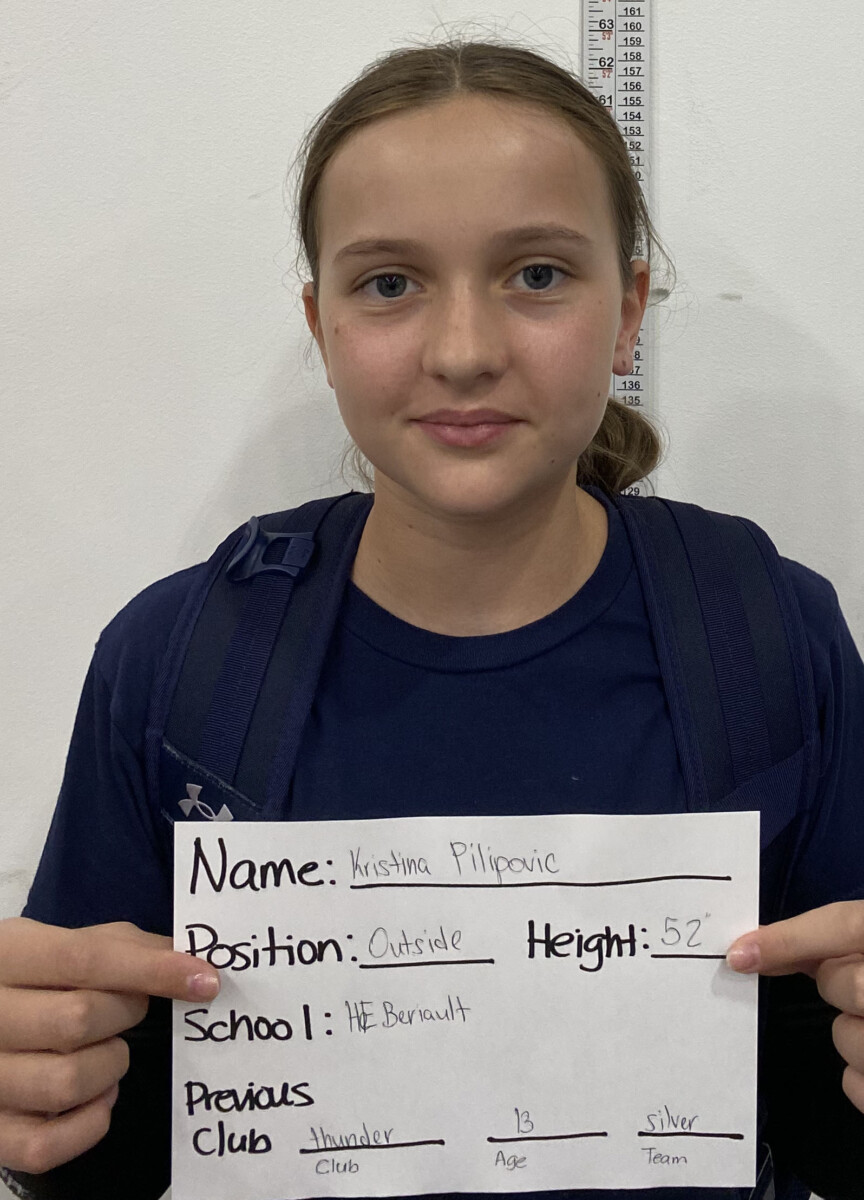 161
63 160
53" 159
158
62 157
52" 156
61 155
154
153
152
136
135
129
Name: Kristina Pilipovic
Position: Outside Height: 52"
School: HE Beriault
Previous
Club thunder 13 silver
Club Age Team